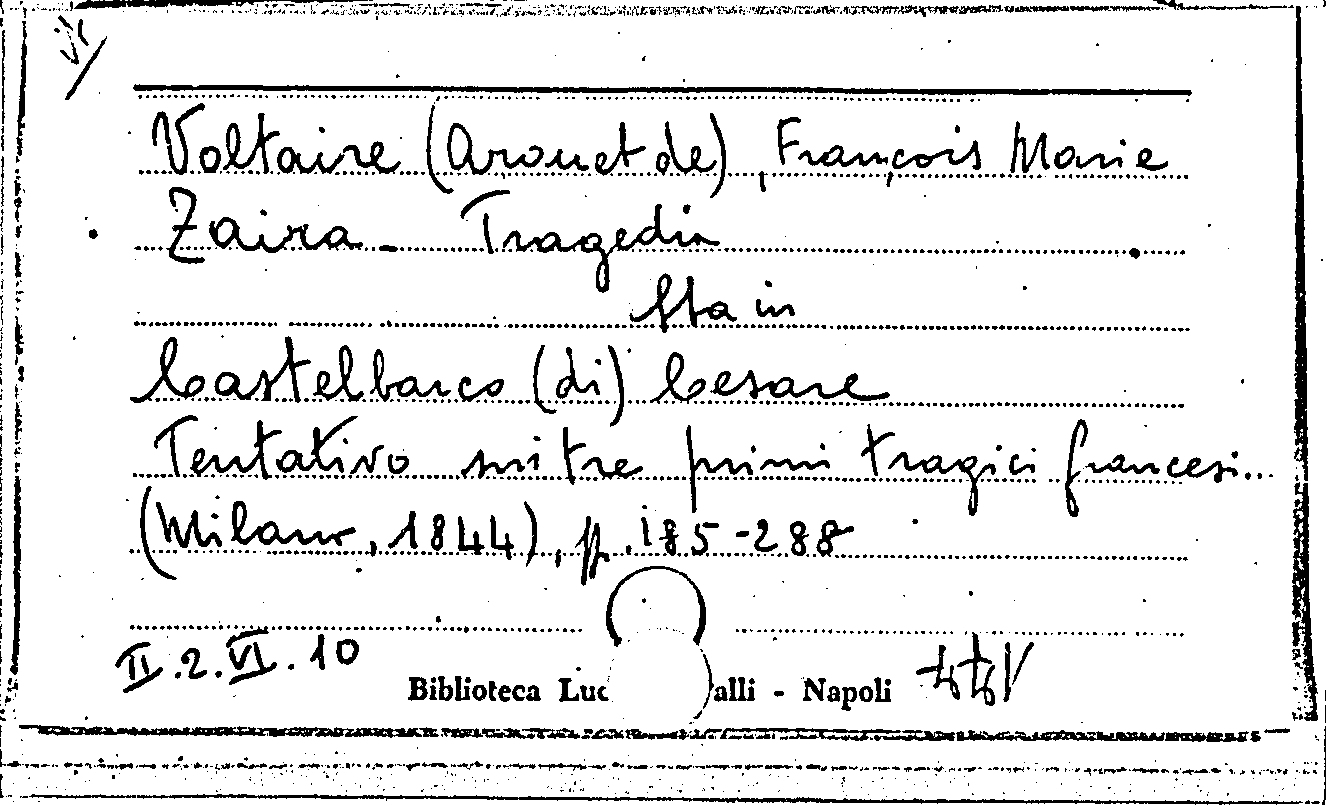 Voltaire (Arouet de), François Marie
Zaira - Tragedia
Sta in
Castelbarco (di) Cesare
Tentativo sui tre primi tragici francesi...
(Milano, 1844), p. 185-288
II.2.VI.10
Biblioteca Luc alli - Napoli